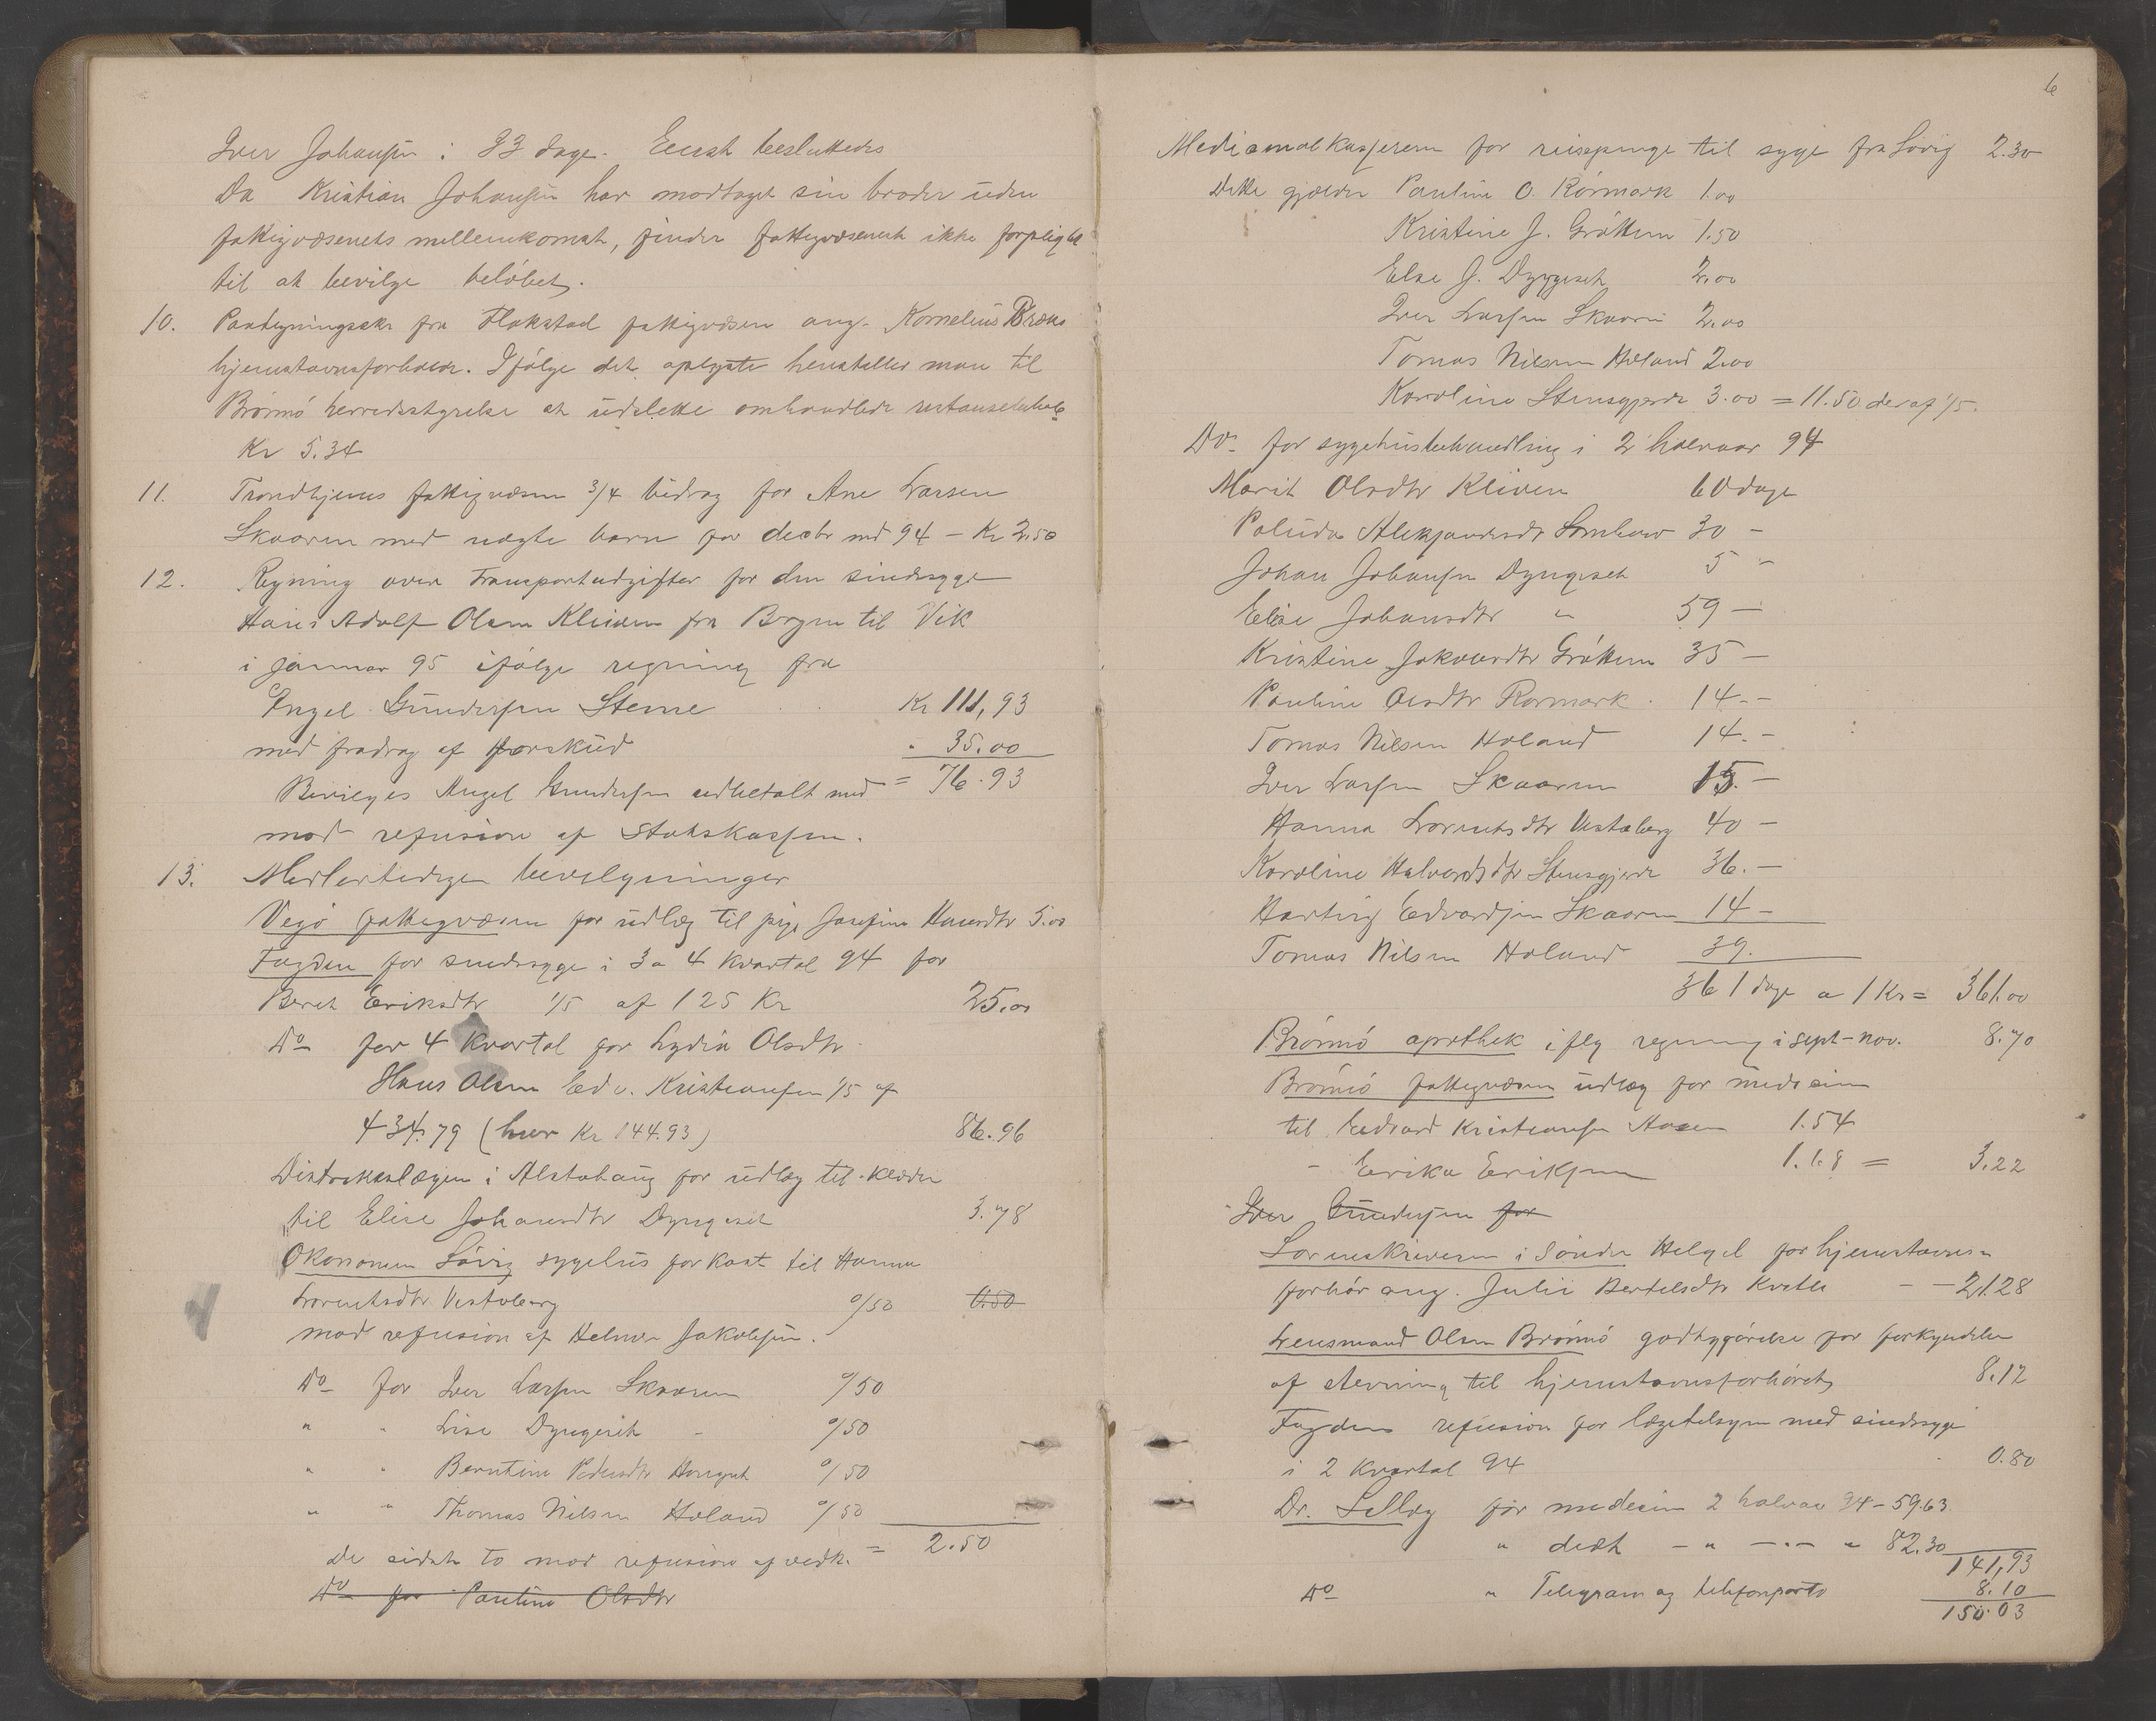 Iver Johansen i 33 dage. Eenst besluttedes
Da Kristian Johansen har modtaget sin broder uden
fattigvæsenets mellemkomst, finder fattigvæsenet ikke forpligtet
til at bevilge beløbet.
10. Pantegningsskr fra Flakstad fattigvæsen ang. Kornelius
hjemstavnsforhold. Ifølge det oplyste henstilles man til
Brønnø herredsstyrelse at udslette omhandlede restancebeløb
Kr 5.34
11. Trondhjems fattigvæsen 3/4 bidrag for Ane Larsen
Skaaren med uægte barn for decbr md 94 – Kr 2.50
12. Regning over Transportudgifter for den sindssyge
Hans Adolf Olsen Kleiven fra til Vik
i januar 95 ifølge regning fra
Engel Gundersen Stene Kr 111,93
med fradrag af forskud " 35.00
Bevilges Angel Gundersen udbetalt med = 76.93
mod refusion af Statskassen.
13. Midlertidigen bevilgninger
Vegø fattigvæsen for udlæg til pige Josefine Hansdtr 5.00
Fogden for sindssyge i 3 a 4 Kvartal 94 for
Beret Eriksdtr 1/5 af 125 Kr 25.00
Do for 4 Kvartal for Lydia Olsdtr
Hans Olsen Edv. Kristiansen 1/5 af
434.79 (hver Kr 144.93) 86.96
Distriktslægen i Alstahaug for udlæg til klæder
til Elise Johansdtr Dyngeset 3.78
Økonomen Søvig sygehus for Kost til Hanna
Lorentsdtr Vestaberg 0/50 0.50
mod refusion af Helmer Jakobsen.
Do for Iver Larsen Skaaren 0/50
" " Lise Dyngeset - 0/50
" " Berntine Pedersdtr 0/50
" " Thomas Nilsen Holand 0/50
De sidste to mod refusion af vedk. = 2.50
Do for Pauline Olsdtr
6
Medisinalkasseren for reisepenge til syge fra Søvig 2.30
Dette gjælder Pauline O. Rørmark 1.00
Kristine J. Grøttem 1.50
Else J. Dyngeset 2.00
Iver Larsen Skaaren 2.00
Tomas Nilsen Holand 2.00
Karoline Stensgjerde 3.00 = 11.50 deraf 1/5.
Do for sygehusbehandling i 2 halvaar 94
Marit Olsdtr Kleiven 60 dage
Aleksandersdr 30 –
Johan Johansen Dyngeset 5 "
Elise Johansdtr " 59 –
Kristine Jakobsdtr Grøttem 35 –
Pauline Olsdtr Rørmark 14 –
Tomas Nilsen Holand 14. –
Iver Larsen Skaaren 15. –
Hanna Lorentsdtr Vestaberg 40 –
Karoline Halvordsdtr Stensgjerde 36. –
Hartvig Edvardsen Skaaren 14 –
Tomas Nilsen Holand 39.
361 dage a 1 Kr = 361.00
Brønnø apothek iflg regning i sept–nov. 8.70
Brønnø fattigvæsen udlæg for medisin
til Edvard Kristiansen 1.54
– Erika Eriksen 1.68 = 3.22
Iver Gundersen for
Sorenskriveren i Søndre Helgel for hjemstavns=
forhør ang. Julii Bertelsdtr – – 21.28
Lensmand Olsen Brønnø godtgjørelse for forkyndelse
af stevning til hjemstavnsforhøret 8.12
Fogdens refusion for lægetilsyn med sindssyge
i 2 Kvartal 94 0.80
Dr. for medisin 2 halvaar 94 – 59.63
" diæt – " – " – " 82.30 141,93
Do " Telegram og telefonporto 8.10
150.03